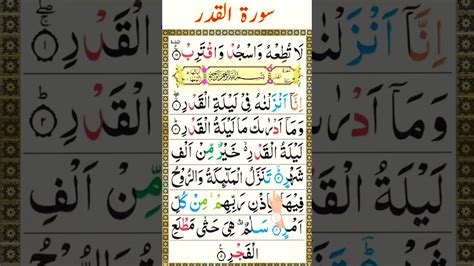 سورة القدر
لَا تُطِعْهُ وَاسْجُدْ وَاقْتَرِبْ
بِسْمِ اللّٰهِ الرَّحْمٰنِ الرَّحِيْمِ
اِنَّآ اَنْزَلْنٰهُ فِيْ لَيْلَةِ الْقَدْرِ
وَمَآ اَدْرٰىكَ مَا لَيْلَةُ الْقَدْرِ
لَيْلَةُ الْقَدْرِ خَيْرٌ مِّنْ اَلْفِ
شَهْرٍ تَنَزَّلُ الْمَلٰٓئِكَةُ وَالرُّوْحُ
فِيْهَا بِاِذْنِ رَبِّهِمْ مِنْ كُلِّ
اَمْرٍ سَلٰمٌ هِيَ حَتّٰى مَطْلَعِ
الْفَجْرِ